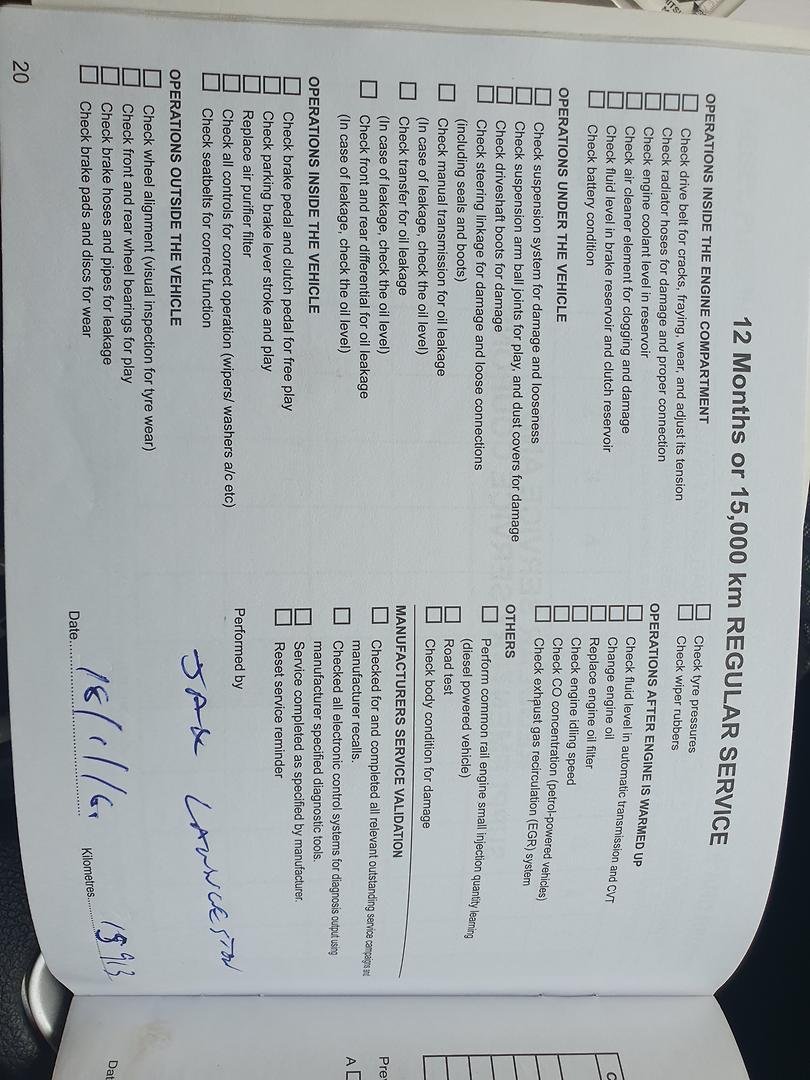 12 Months or 15,000 km REGULAR SERVICE
OPERATIONS INSIDE THE ENGINE COMPARTMENT
Check drive belt for cracks, fraying, wear, and adjust its tension
Check radiator hoses for damage and proper connection
Check engine coolant level in reservoir
Check air cleaner element for clogging and damage
Check fluid level in brake reservoir and clutch reservoir
Check battery condition
OPERATIONS UNDER THE VEHICLE
Check suspension system for damage and looseness
Check suspension arm ball joints for play, and dust covers for damage
Check driveshaft boots for damage
Check steering linkage for damage and loose connections
(including seals and boots)
Check manual transmission for oil leakage
(In case of leakage, check the oil level)
Check transfer for oil leakage
(In case of leakage, check the oil level)
Check front and rear differential for oil leakage
(In case of leakage, check the oil level)
OPERATIONS INSIDE THE VEHICLE
Check brake pedal and clutch pedal for free play
Check parking brake lever stroke and play
Replace air purifier filter
Check all controls for correct operation (wipers/ washers a/c etc)
Check seatbelts for correct function
OPERATIONS OUTSIDE THE VEHICLE
Check wheel alignment (visual inspection for tyre wear)
Check front and rear wheel bearings for play
Check brake hoses and pipes for leakage
Check brake pads and discs for wear
20
Check tyre pressures
Check wiper rubbers
OPERATIONS AFTER ENGINE IS WARMED UP
Check fluid level in automatic transmission and CVT
Change engine oil
Replace engine oil filter
Check engine idling speed
Check CO concentration (petrol-powered vehicles)
Check exhaust gas recirculation (EGR) system
OTHERS
Perform common rail engine small injection quantity learning
(diesel powered vehicle)
Road test
Check body condition for damage
MANUFACTURERS SERVICE VALIDATION
Checked for and completed all relevant outstanding service campaigns and
manufacturer recalls.
Checked all electronic control systems for diagnosis output using
manufacturer specified diagnostic tools.
Service completed as specified by manufacturer.
Reset service reminder
Performed by
LAUNCESTON
Date
Kilometres